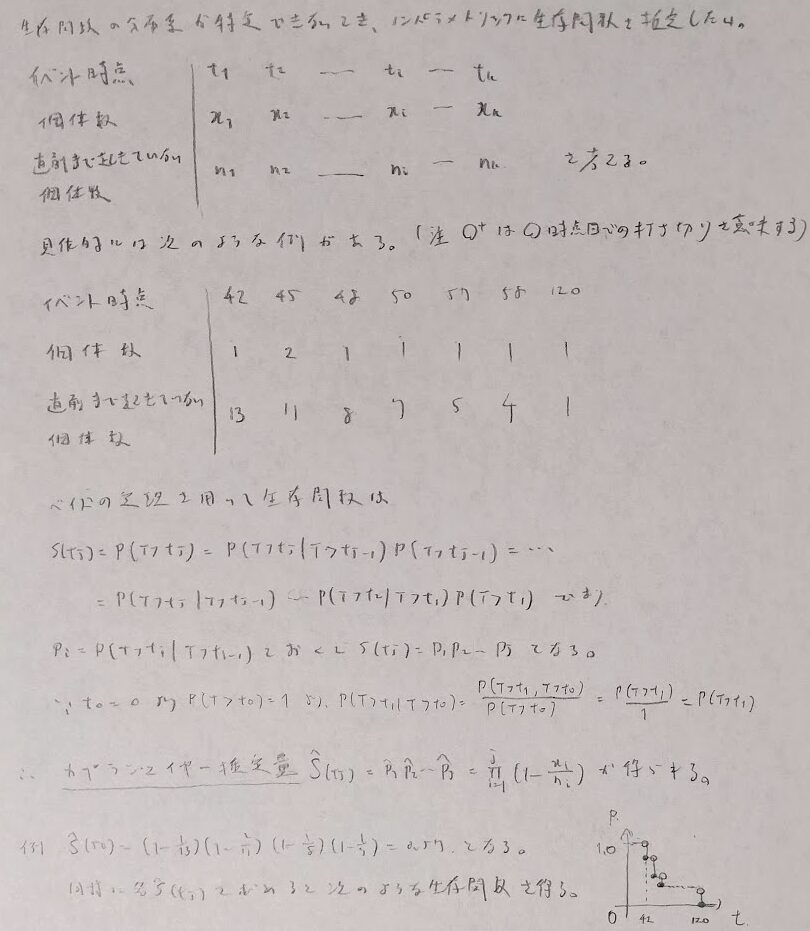 生存関数の分布系が特定できないとき、ノンパラメトリックに生存関数を推定したい。
イベント時点 t₁ t₂ — tᵢ — tₖ
個体数 x₁ x₂ — xᵢ — xₖ
直前まで起きていない n₁ n₂ — nᵢ — nₖ と考える。
個体数
具体的には次のような例がある。(注 〇⁺は〇時点目での打ち切りを意味する)
イベント時点 42 45 48 50 57 58 120
個体数 1 2 1 1 1 1 1
直前まで起きていない 13 11 8 7 5 4 1
個体数
ベイズの定理を用いて生存関数は
S(tⱼ) = P(T>tⱼ) = P(T>tⱼ|T>tⱼ₋₁) P(T>tⱼ₋₁) = …
= P(T>tⱼ|T>tⱼ₋₁) … P(T>t₂|T>t₁) P(T>t₁) であり
Pᵢ = P(T>tᵢ|T>tᵢ₋₁) とおくと S(tⱼ) = P₁P₂…Pⱼ となる。
∵ t₀=0 より P(T>t₀)=1 より、P(T>t₁|T>t₀) = P(T>t₁, T>t₀)/P(T>t₀) = P(T>t₁)/1 = P(T>t₁)
∴ カプランマイヤー推定量 Ŝ(tⱼ) = P̂₁P̂₂…P̂ⱼ = ∏ᵢ₌₁ʲ (1 - xᵢ/nᵢ) が得られる。
例 Ŝ(50) = (1-1/13)(1-2/11)(1-1/8)(1-1/7) = 0.57 となる。
同様に各Ŝ(tⱼ)を求めると次のような生存関数を得る。
P
1.0
0 42 120 t